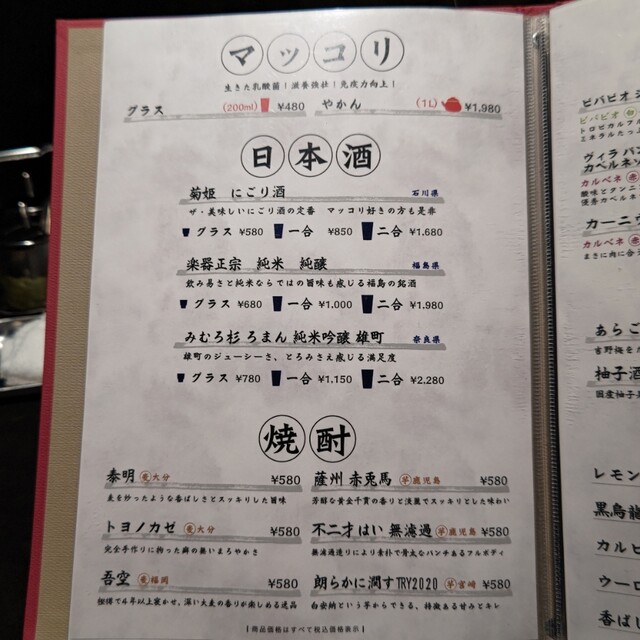 マッコリ
生きた乳酸菌！滋養強壮！免疫力向上！
グラス (200ml) ¥480 やかん (1L) ¥1,980
日本酒
菊姫 にごり酒 石川県
ザ・美味しいにごり酒の定番 マッコリ好きの方も是非
グラス ¥580 一合 ¥850 二合 ¥1,680
楽器正宗 純米 純醸 福島県
飲み易さと純米ならではの旨味も感じる福島の銘酒
グラス ¥680 一合 ¥1,000 二合 ¥1,980
みむろ杉 ろまん 純米吟醸 雄町 奈良県
雄町のジューシーさ、とろみさえ感じる満足度
グラス ¥780 一合 ¥1,150 二合 ¥2,280
焼酎
泰明 麦 大分 ¥580
麦を炒ったような香ばしさとスッキリした旨味
トヨノカゼ 麦 大分 ¥580
完全手作りに拘った麹の無いまろやかさ
吾空 麦 福岡 ¥580
樫樽で4年以上寝かせ、深い大麦の香りが楽しめる逸品
薩州 赤兎馬 芋 鹿児島 ¥580
芳醇な黄金千貫の香りと淡麗でスッキリとした味わい
不二才はい 無濾過 芋 鹿児島 ¥580
無濾過造りにより素朴で骨太なパンチあるフルボディ
朗らかに潤す TRY2020 芋 宮崎 ¥580
白安納という芋からできる、特徴ある甘みとキレ
| 商品価格はすべて税込価格表示 |
ビバビオ
ビバビオ 白
トロピカルフル
ミネラルたっ
ヴィラ パン
カベルネ
カルベネ 赤
酸味とタンニ
優秀カベルネ
カーニ
カルベネ 赤
まさに肉に合う
あらご
吉野梅をた
柚子酒
国産柚子果
レモン
黒烏龍
カルピ
ウーロ
香ばし